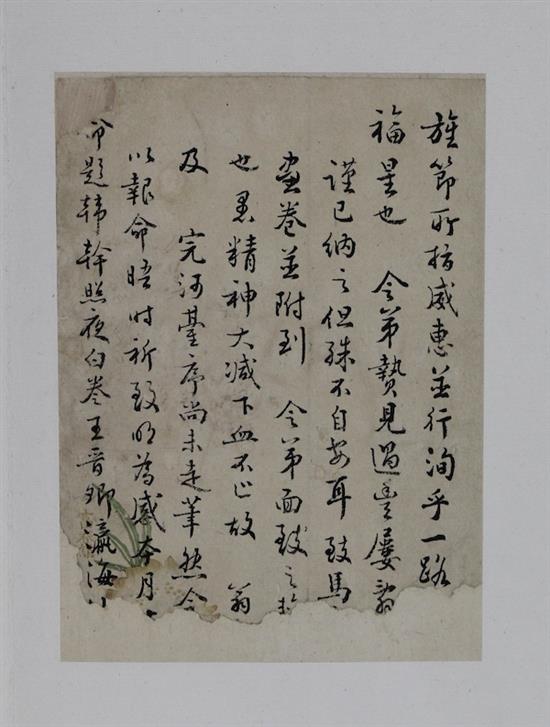 旌節所指威惠並行洵乎一路
福星也 令弟贄見過豐屢辭
謹已納之但殊不自安耳致馬
畫卷並附到 令弟面致之
也 精神大減下血不止故 翁
及 完河臺序尚未走筆然今
以報命晤時祈致明為感本月
命題韓幹照夜白卷王晉卿瀛海